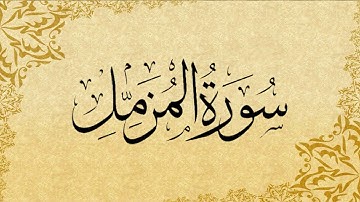 سُورَةُ المُزَمِّلِ